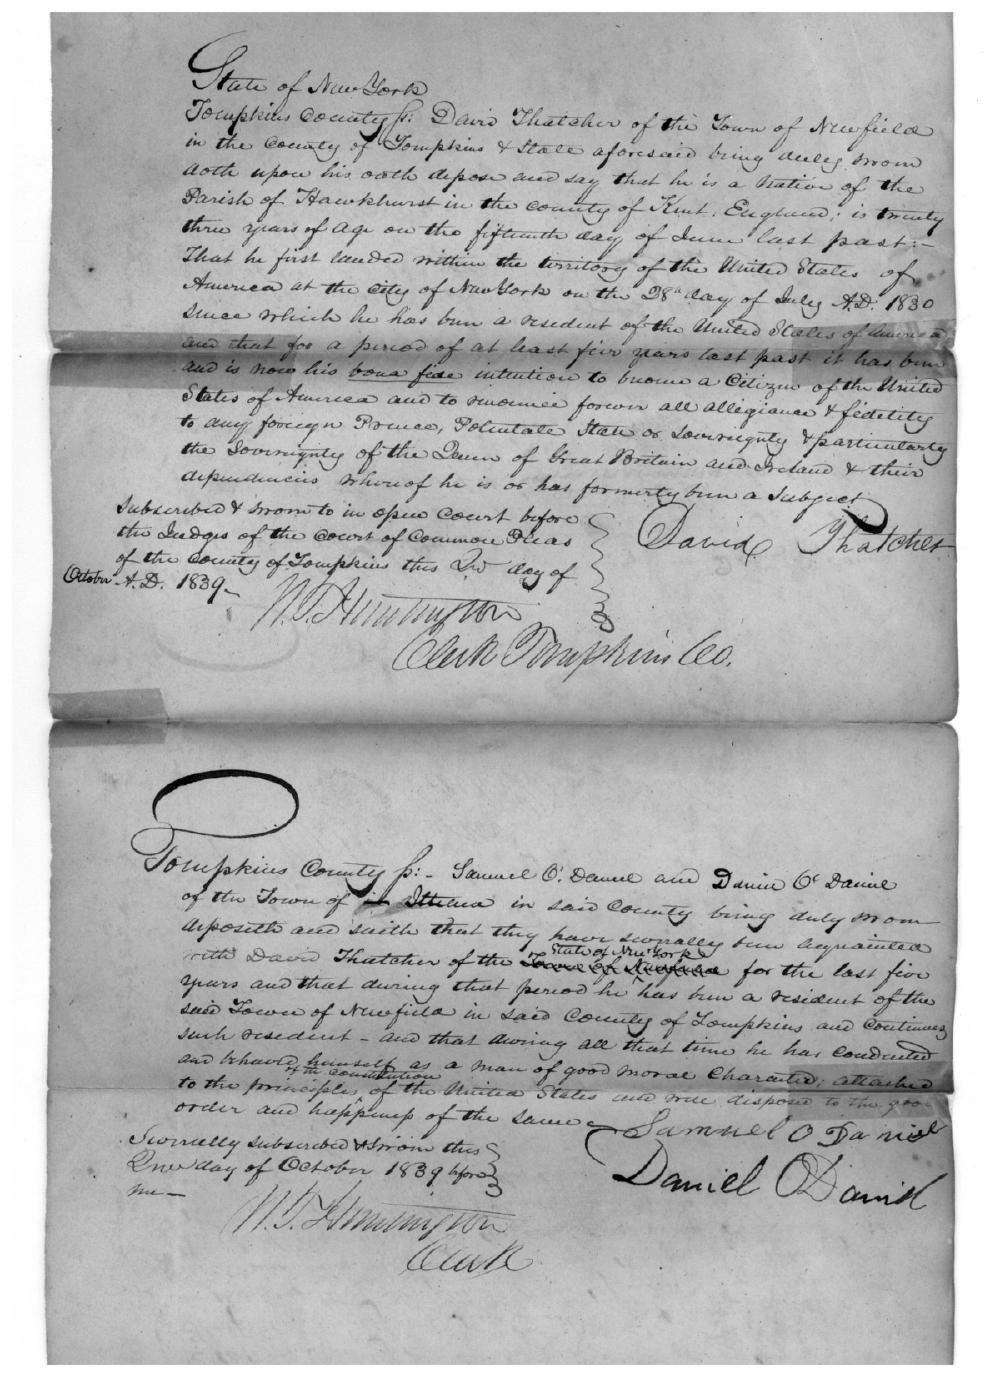 State of New York
Tompkins County ss: David Thatcher of the Town of Newfield
in the County of Tompkins & State aforesaid being duly sworn
doth upon his oath depose and say that he is a Native of the
Parish of Hawkhurst in the county of Kent, England; is twenty
three years of age on the fifteenth day of June last past:-
That he first landed within the territory of the United States of
America at the city of New York on the 28th day of July A.D. 1830
since which he has been a resident of the United States of America
and that for a period of at least five years last past it has been
and is now his bona fide intention to become a Citizen of the United
States of America and to renounce forever all allegiance & fidelity
to any foreign Prince, Potentate State or Sovereignty & particularly
the Sovereignty of the Queen of Great Britain and Ireland & their
dependencies whereof he is or has formerly been a Subject
Subscribed & sworn to in open Court before
the Judges of the Court of Common Pleas
of the County of Tompkins this 2nd day of
October A.D. 1839-
David Thatcher
W.T. Huntington
Clerk Tompkins Co.
Tompkins County ss:- Samuel O'Daniel and Daniel O'Daniel
of the Town of in Ithaca in said County being duly sworn
deposeth and saith that they have severally been acquainted
State of New York
with David Thatcher of the Town of Newfield for the last five
years and that during that period he has been a resident of the
said Town of Newfield in said County of Tompkins and continues
such resident - and that during all that time he has conducted
and behaved himself as a man of good moral Character; attached
of the constitution
to the principles of the United States and well disposed to the good
order and happiness of the same -
Samuel O Daniel
Severally subscribed & sworn this
2nd day of October 1839 before
me -
Daniel O Daniel
W.T. Huntington
Clerk